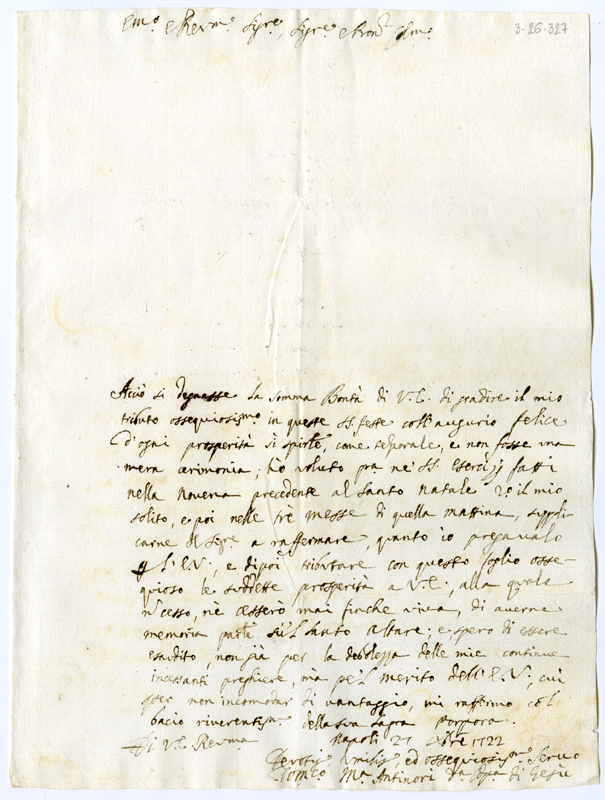 Em.o e Rev.mo Sig.re, Sig.re e Pron.e Col.mo
3-26-327
Acciò si degnasse la somma Bontà di V.E. di gradire il mio
tributo ossequiosissimo in queste SS. feste coll'augurio felice
d'ogni prosperità sì spirle, come temporale, e non fosse una
mera cerimonia; hò voluto pra ne' SS. Esercizj fatti
nella Novena precedente al Santo Natale il mio
solito, e poi nelle trè messe di quella mattina, suppli-
carne il Sig.re a raffermare, quanto io pregavalo
p l'E.V., e dipoi tributare con questo foglio osse-
quioso le suddette prosperità a V.E., alla quale
n cesso, nè cesserò mai finche viva, di averne
memoria parle sù'l santo Altare; e spero di essere
esaudito, non già per la debolezza delle mie continue
incessanti preghiere, mà pe'l merito dell'E.V., cui
per non incomodar di vantaggio, mi raffermo col
bacio riverentissimo della sua Sagra Porpora.
Di V.E. Rev.ma Napoli 27 Xbre 1722
Devotis. Umilis., ed ossequiosissimo Servo
Tomeo Ma. Antinori di Gesù